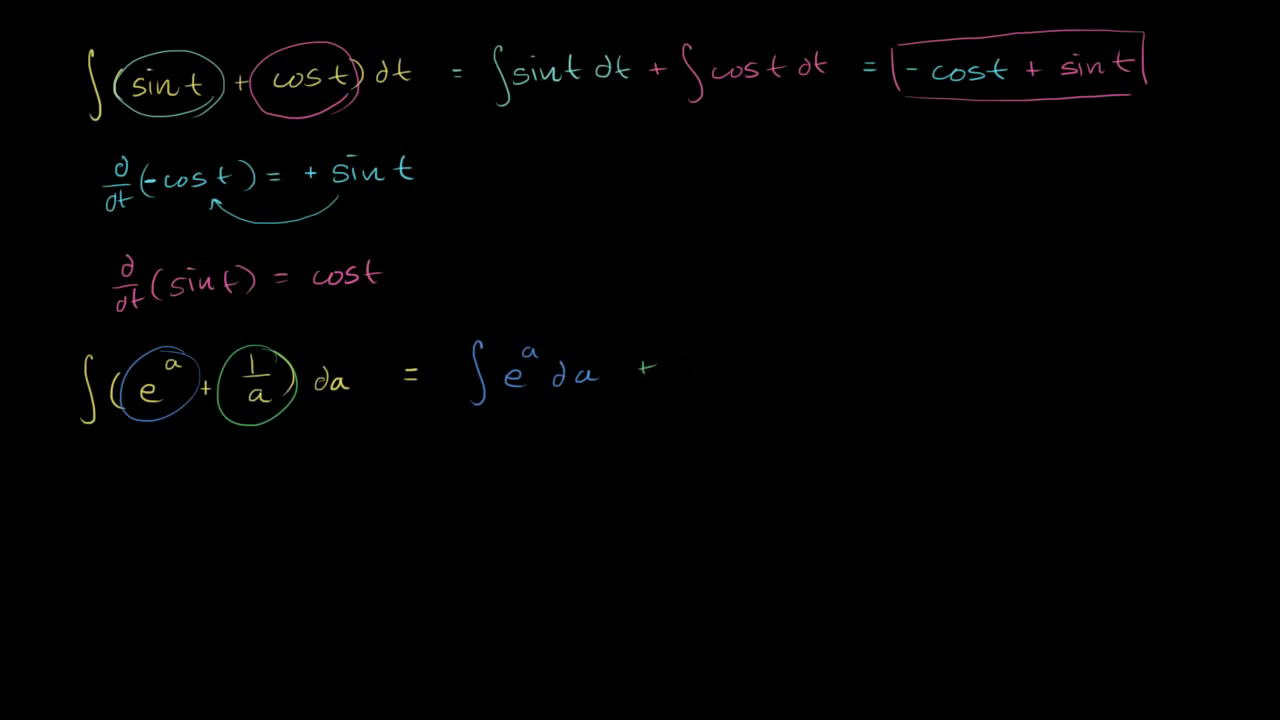 ∫ (sin t + cos t) dt = ∫ sin t dt + ∫ cos t dt = - cos t + sin t
d/dt (-cos t) = + sin t
d/dt (sin t) = cos t
∫ (e^a + 1/a) da = ∫ e^a da +